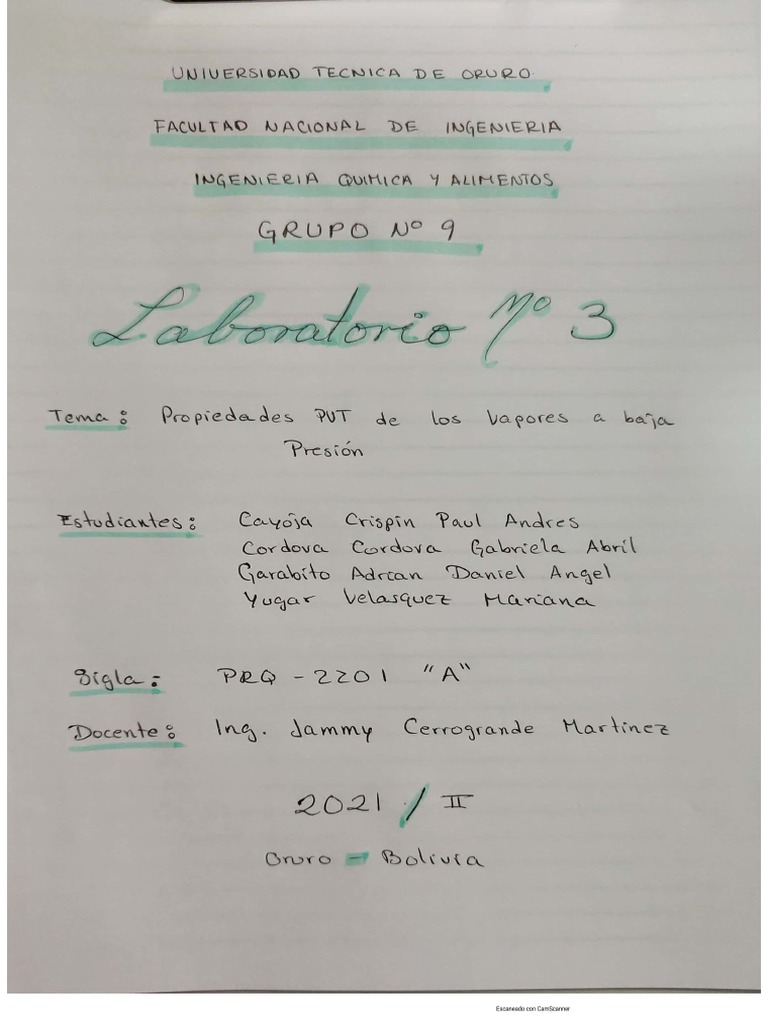 UNIVERSIDAD TECNICA DE ORURO.
FACULTAD NACIONAL DE INGENIERIA
INGENIERIA QUIMICA Y ALIMENTOS
GRUPO Nº 9
Laboratorio Nº 3
Tema: Propiedades PVT de los Vapores a baja
Presión
Estudiantes: Cayoja Crispin Paul Andres
Cordova Cordova Gabriela Abril
Garabito Adrian Daniel Angel
Yugar Velasquez Mariana
Sigla: PRQ - 2201 "A"
Docente: Ing. Jammy Cerrogrande Martinez
2021 / II
Oruro - Bolivia
Escaneado con CamScanner